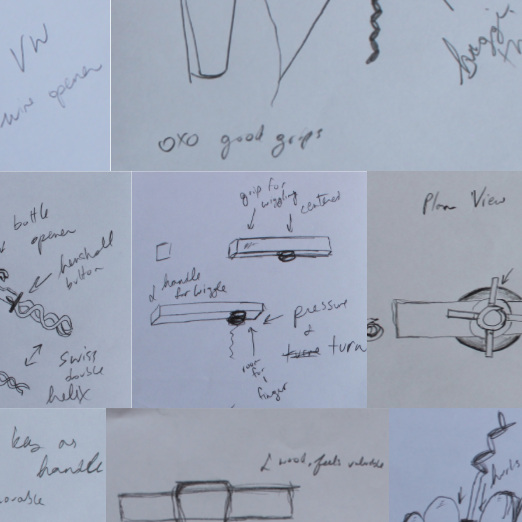 VW
wine opener
OXO good grips
bottle
opener
button
swiss
double
helix
grip for
wiggling
centered
handle
for wiggle
pressure
&
turn
room
for
finger
Plan View
key as
handle
wood, feels valuable